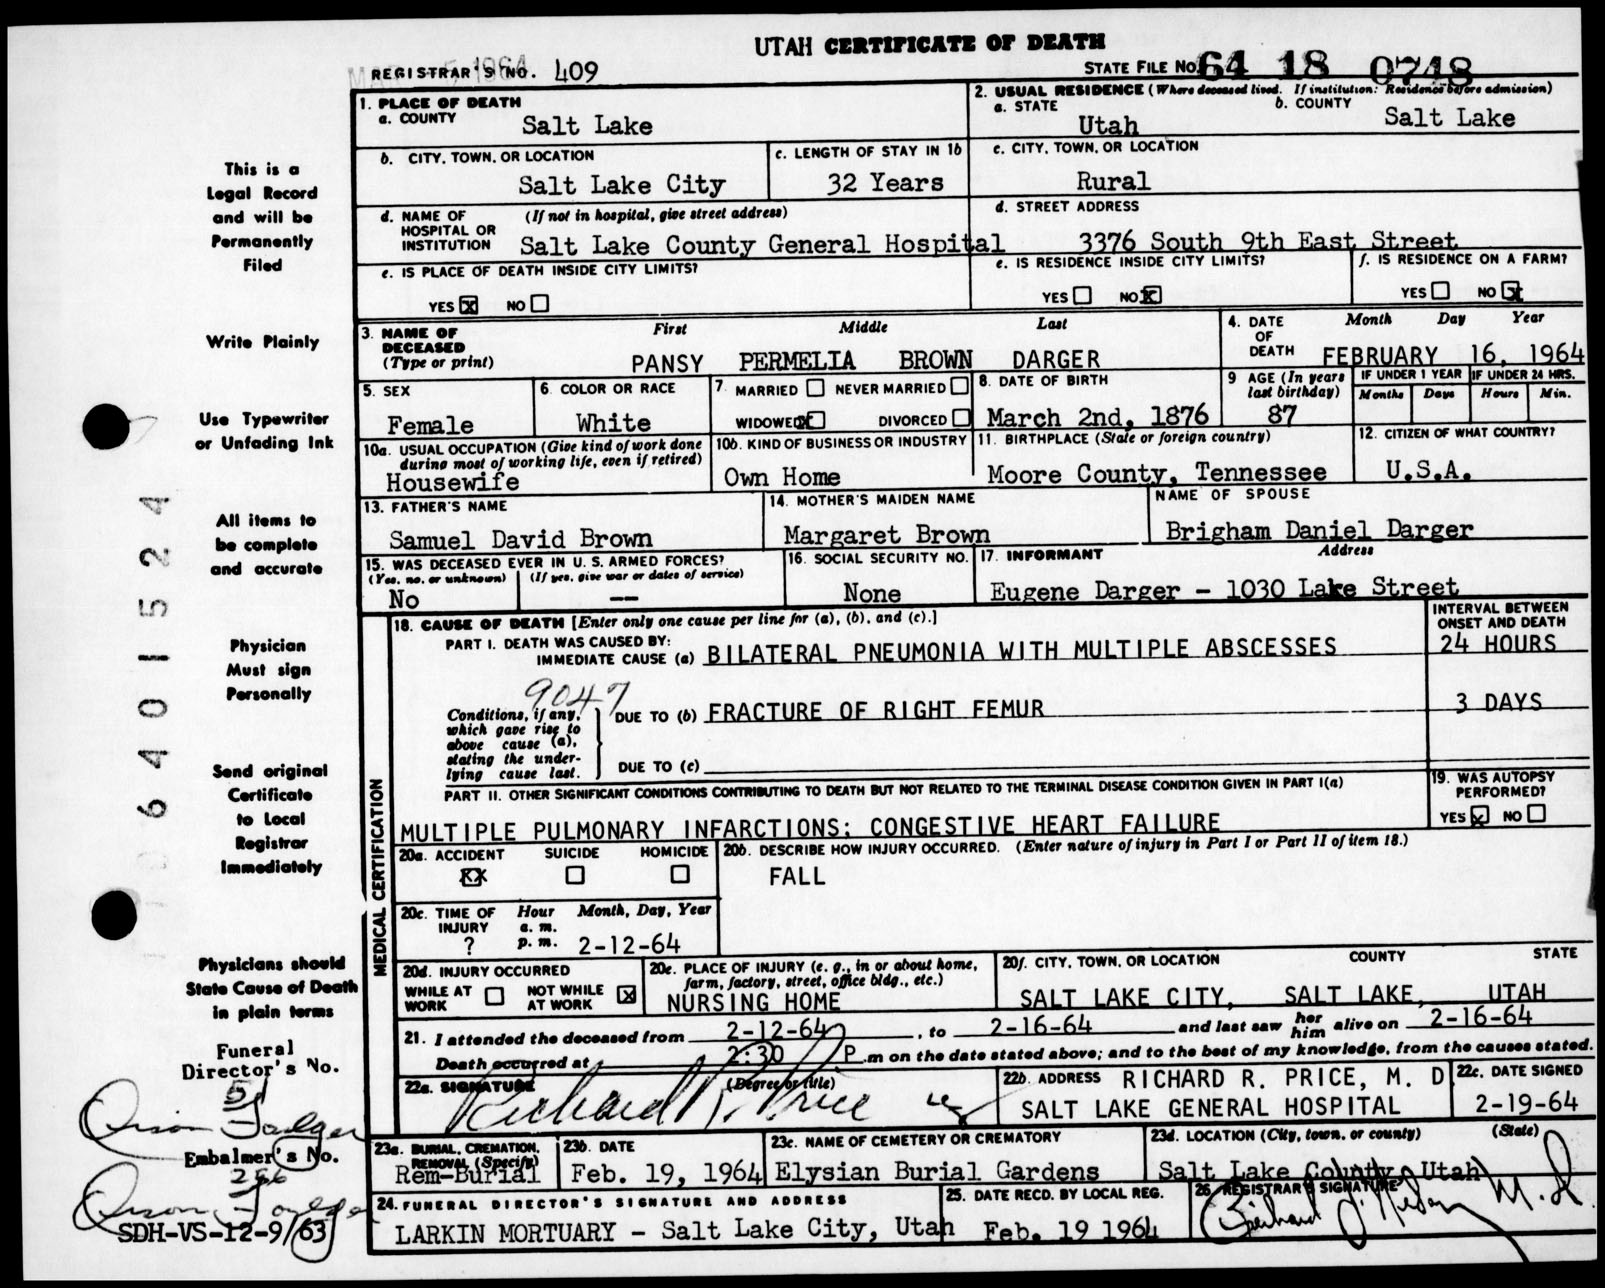 UTAH CERTIFICATE OF DEATH
MAR 5 1964
REGISTRAR'S NO. 409
STATE FILE NO. 64 18 0748
1. PLACE OF DEATH
a. COUNTY Salt Lake
2. USUAL RESIDENCE (Where deceased lived. If institution: Residence before admission)
a. STATE Utah b. COUNTY Salt Lake
b. CITY, TOWN, OR LOCATION Salt Lake City
c. LENGTH OF STAY IN 1b 32 Years
c. CITY, TOWN, OR LOCATION Rural
d. NAME OF HOSPITAL OR INSTITUTION (If not in hospital, give street address) Salt Lake County General Hospital
d. STREET ADDRESS 3376 South 9th East Street
e. IS PLACE OF DEATH INSIDE CITY LIMITS?
YES X NO
e. IS RESIDENCE INSIDE CITY LIMITS?
YES NO X
f. IS RESIDENCE ON A FARM?
YES NO X
3. NAME OF DECEASED (Type or print) First Middle Last
PANSY PERMELIA BROWN DARGER
4. DATE OF DEATH Month Day Year
FEBRUARY 16, 1964
5. SEX Female
6. COLOR OR RACE White
7. MARRIED NEVER MARRIED
WIDOWED X DIVORCED
8. DATE OF BIRTH March 2nd, 1876
9 AGE (In years last birthday) 87
IF UNDER 1 YEAR Months Days
IF UNDER 24 HRS. Hours Min.
10a. USUAL OCCUPATION (Give kind of work done during most of working life, even if retired) Housewife
10b. KIND OF BUSINESS OR INDUSTRY Own Home
11. BIRTHPLACE (State or foreign country) Moore County, Tennessee
12. CITIZEN OF WHAT COUNTRY? U.S.A.
13. FATHER'S NAME Samuel David Brown
14. MOTHER'S MAIDEN NAME Margaret Brown
NAME OF SPOUSE Brigham Daniel Darger
15. WAS DECEASED EVER IN U. S. ARMED FORCES?
(Yes, no, or unknown) No
(If yes, give war or dates of service) --
16. SOCIAL SECURITY NO. None
17. INFORMANT Address
Eugene Darger - 1030 Lake Street
MEDICAL CERTIFICATION
18. CAUSE OF DEATH [Enter only one cause per line for (a), (b), and (c).]
INTERVAL BETWEEN ONSET AND DEATH
PART I. DEATH WAS CAUSED BY:
IMMEDIATE CAUSE (a) BILATERAL PNEUMONIA WITH MULTIPLE ABSCESSES 24 HOURS
9047
Conditions, if any, which gave rise to above cause (a), stating the underlying cause last.
DUE TO (b) FRACTURE OF RIGHT FEMUR 3 DAYS
DUE TO (c)
PART II. OTHER SIGNIFICANT CONDITIONS CONTRIBUTING TO DEATH BUT NOT RELATED TO THE TERMINAL DISEASE CONDITION GIVEN IN PART I(a)
MULTIPLE PULMONARY INFARCTIONS; CONGESTIVE HEART FAILURE
19. WAS AUTOPSY PERFORMED?
YES X NO
20a. ACCIDENT SUICIDE HOMICIDE
XX
20b. DESCRIBE HOW INJURY OCCURRED. (Enter nature of injury in Part I or Part II of item 18.)
FALL
20c. TIME OF INJURY Hour Month, Day, Year
a. m.
? p. m. 2-12-64
20d. INJURY OCCURRED
WHILE AT WORK NOT WHILE AT WORK X
20e. PLACE OF INJURY (e. g., in or about home, farm, factory, street, office bldg., etc.)
NURSING HOME
20f. CITY, TOWN, OR LOCATION COUNTY STATE
SALT LAKE CITY, SALT LAKE, UTAH
21. I attended the deceased from 2-12-64, to 2-16-64 and last saw her him alive on 2-16-64
Death occurred at 2:30 P.m on the date stated above; and to the best of my knowledge, from the causes stated.
22a. SIGNATURE (Degree or title)
Richard R. Price
22b. ADDRESS RICHARD R. PRICE, M. D
SALT LAKE GENERAL HOSPITAL
22c. DATE SIGNED 2-19-64
23a. BURIAL, CREMATION, REMOVAL (Specify) Rem-Burial
23b. DATE Feb. 19, 1964
23c. NAME OF CEMETERY OR CREMATORY Elysian Burial Gardens
23d. LOCATION (City, town, or county) (State)
Salt Lake County, Utah
24. FUNERAL DIRECTOR'S SIGNATURE AND ADDRESS
LARKIN MORTUARY - Salt Lake City, Utah
25. DATE RECD. BY LOCAL REG.
Feb. 19 1964
26 REGISTRAR'S SIGNATURE
M.D.
This is a
Legal Record
and will be
Permanently
Filed
Write Plainly
Use Typewriter
or Unfading Ink
All items to
be complete
and accurate
Physician
Must sign
Personally
Send original
Certificate
to Local
Registrar
Immediately
Physicians should
State Cause of Death
in plain terms
Funeral
Director's No.
51
Embalmer's No.
256
SDH-VS-12-9/63
6401524